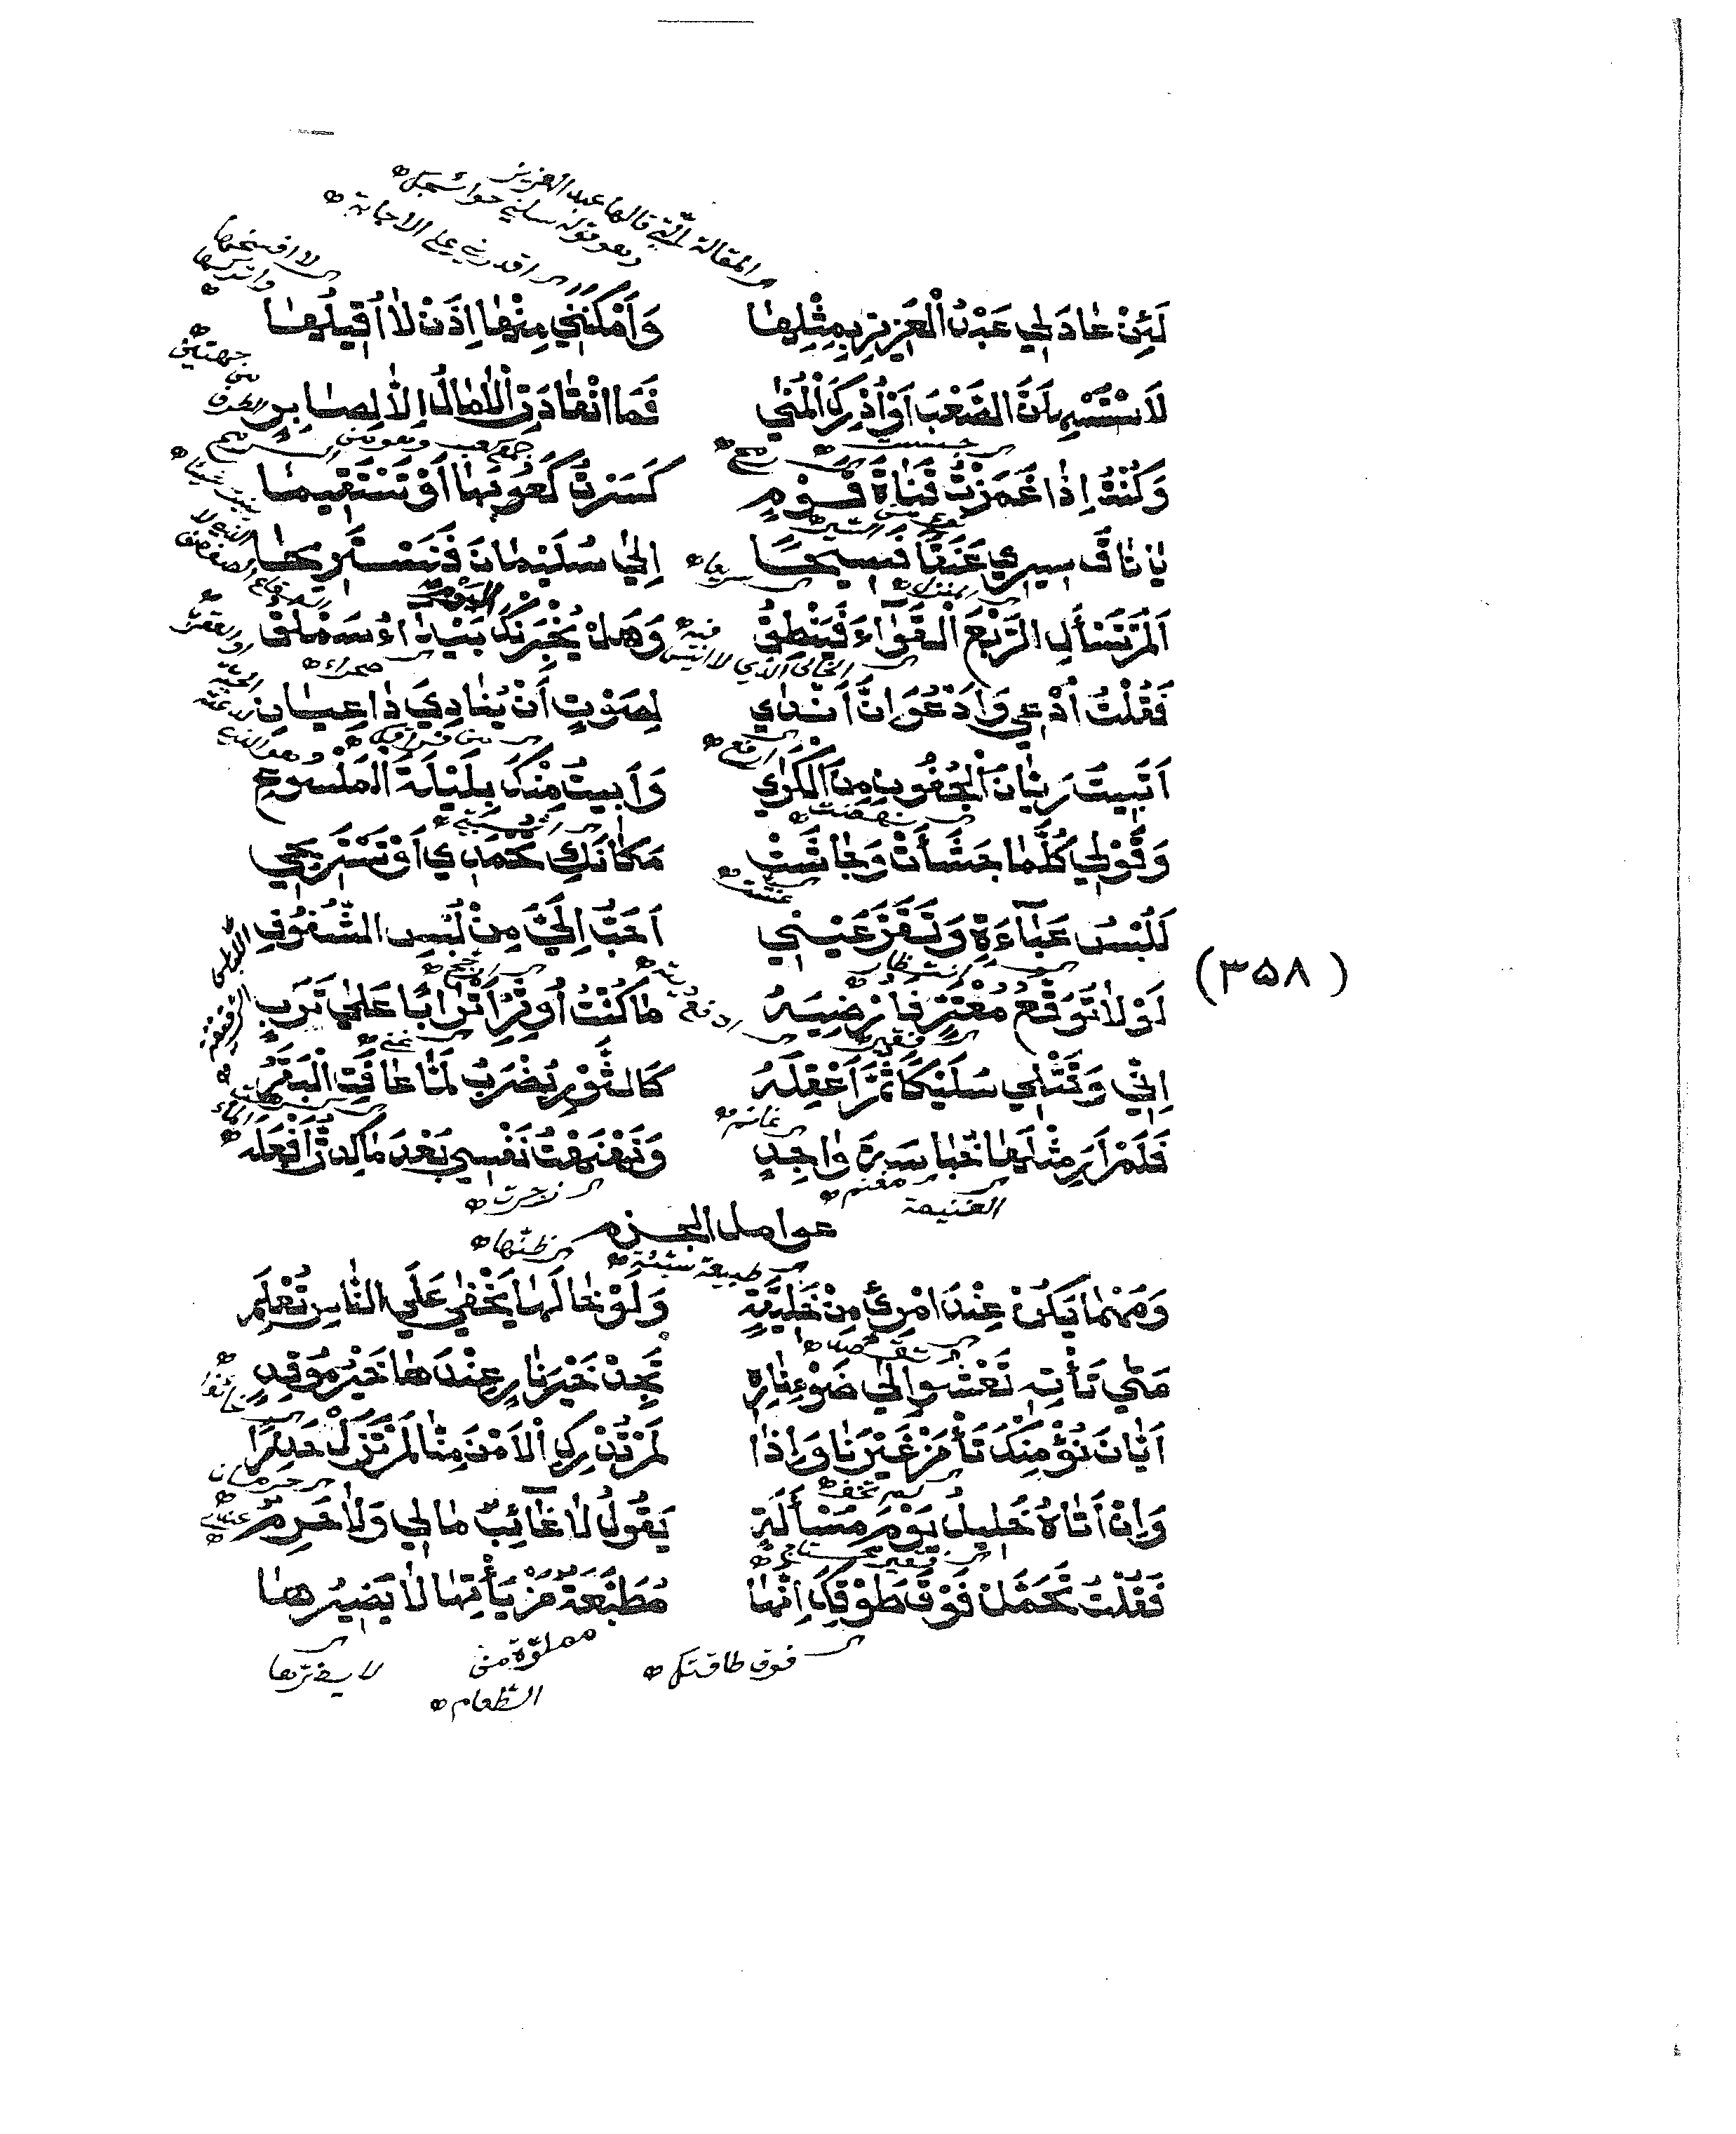 اي المقالة الّتي قالها عبد العزيز
وهو قوله سلني حوائجك
اي اقدرني على الاجابة
اي لا افسخها
واتركها
لَئِنْ عٰادَ لِي عَبْدُ الْعَزِيزِ بِمِثْلِهٰا وَأَمْكَنَنِي مِنْهٰا إِذَنْ لاٰ أُقِيلُهٰا
لَأَسْتَسْهِلَنَّ الصَّعْبَ أَوْ أُدْرِكَ الْمُنىٰ فَمَا انْقٰادَتِ الْاٰمٰالُ إِلاّٰ لِصٰابِرِ
وَكُنْتُ إِذٰا غَمَزْتُ قَنٰاةَ قَوْمٍ كَسَرْتُ كُعُوبَهٰا أَوْ تَسْتَقِيمٰا
يٰا نٰاقُ سِيرِي عَنَقًا فَسِيحًا إِلىٰ سُلَيْمٰانَ فَنَسْتَرِيحٰا
اي سريعا
أَلَمْ تَسْأَلِ الرَّبْعَ الْقَوٰاءَ فَيَنْطِقُ وَهَلْ يُخْبِرَنْكَ الْيَوْمَ بَيْدٰاءُ سَمْلَقُ
اي الخالي الّذي لا انيس فيه
اي صحراء
فَقُلْتُ ادْعِي وَأَدْعُوَ إِنَّ أَنْدىٰ لِصَوْتٍ أَنْ يُنٰادِيَ دٰاعِيٰانِ
اي ارفع
أَتَبِيتُ رَيّٰانَ الْجُفُونِ مِنَ الْكَرىٰ وَأَبِيتَ مِنْكَ بِلَيْلَةِ الْمَلْسُوعِ
اي نهضت
وَقَوْلِي كُلَّمٰا جَشَأَتْ وَجٰاشَتْ مَكٰانَكِ تُحْمَدِي أَوْ تَسْتَرِيحِي
لَلُبْسُ عَبٰاءَةٍ وَتَقَرَّ عَيْنِي أَحَبُّ إِلَيَّ مِنْ لُبْسِ الشُّفُوفِ
(٣٥٨)
اي انتظار
لَوْلاٰ تَوَقُّعُ مُعْتَرٍّ فَأُرْضِيَهُ مٰا كُنْتُ أُوثِرُ أَتْرٰابًا عَلىٰ تَرَبِ
إِنِّي وَقَتْلِي سُلَيْكًا ثُمَّ أَعْقِلَهُ كَالثَّوْرِ يُضْرَبُ لَمّٰا عٰافَتِ الْبَقَرُ
فَلَمْ أَرَ مِثْلَهٰا خُبٰاسَةَ وٰاحِدٍ وَنَهْنَهْتُ نَفْسِي بَعْدَ مٰا كِدْتُ أَفْعَلَهُ
اي زجرت
عوامل الجزم
اي طبيعة
اي ظنّها
وَمَهْمٰا يَكُنْ عِنْدَ امْرِئٍ مِنْ خَلِيقَةٍ وَلَوْ خٰالَهٰا يَخْفىٰ عَلَى النّٰاسِ تُعْلَمِ
مَتىٰ تَأْتِهِ تَعْشُو إِلىٰ ضَوْءِ نٰارِهِ تَجِدْ خَيْرَ نٰارٍ عِنْدَهٰا خَيْرُ مُوقِدٍ
اي خائفا
أَيّٰانَ نُؤْمِنْكَ تَأْمَنْ غَيْرَنٰا وَإِذٰا لَمْ تُدْرِكِ الْأَمْنَ مِنّٰا لَمْ تَزَلْ حَذِرًا
اي لم تخف
وَإِنْ أَتٰاهُ خَلِيلٌ يَوْمَ مَسْأَلَةٍ يَقُولُ لاٰ غٰائِبٌ مٰالِي وَلاٰ حَرِمُ
اي فقير محتاج
فَقُلْتُ تَحَمَّلْ فَوْقَ طَوْقِكَ إِنَّهٰا مُطَبَّعَةٌ مَنْ يَأْتِهٰا لاٰ يَضِيرُهٰا
اي فوق طاقتك
مملوّة من
الطّعام
اي لا يضرّها